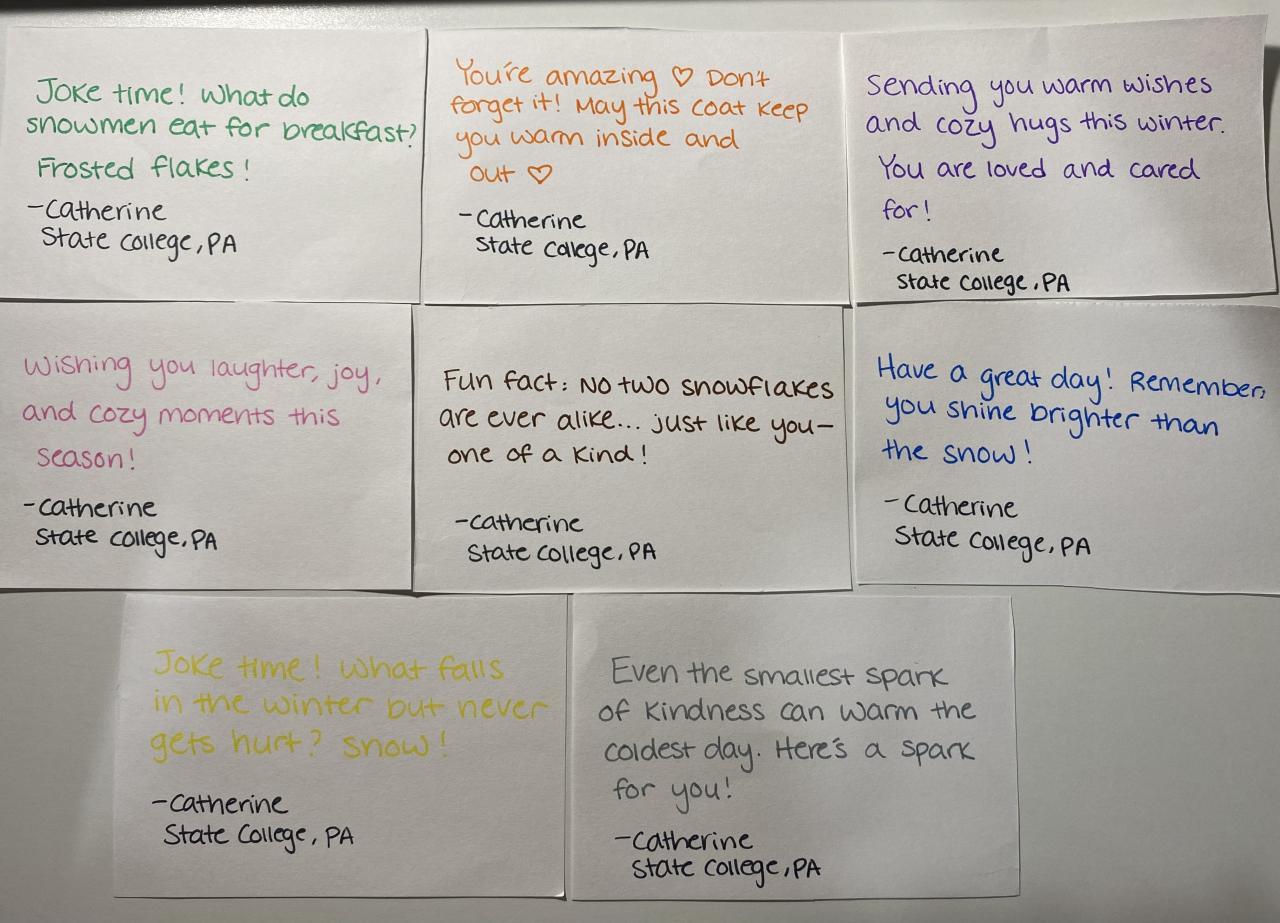 Joke time! What do
snowmen eat for breakfast?
Frosted flakes!
-Catherine
State College, PA
You're amazing ♡ Don't
forget it! May this coat keep
you warm inside and
out ♡
-Catherine
State College, PA
Sending you warm wishes
and cozy hugs this winter.
You are loved and cared
for!
-Catherine
State College, PA
Wishing you laughter, joy,
and cozy moments this
season!
-Catherine
State College, PA
Fun fact: No two snowflakes
are ever alike... just like you-
one of a kind!
-Catherine
State College, PA
Have a great day! Remember,
you shine brighter than
the snow!
-Catherine
State College, PA
Joke time! What falls
in the winter but never
gets hurt? Snow!
-Catherine
State College, PA
Even the smallest spark
of kindness can warm the
coldest day. Here's a spark
for you!
-Catherine
State College, PA